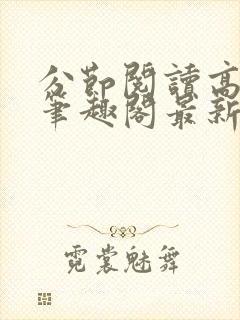 公節閱讀高
筆趣閣最新
霓裳魅舞